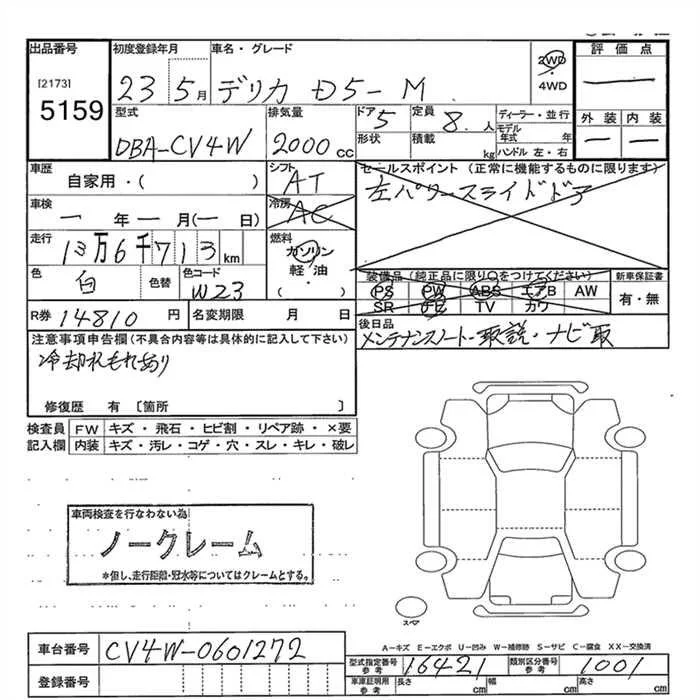 出品番号 初度登録年月 車名・グレード 2WD 4WD 評価点
[2173] 5159 23 5月 デリカ D5-M ―
型式 排気量 ドア 5 定員 8.人 ディーラー・並行 外装 内装
DBA-CV4W 2000cc 形状 積載 kg モデル年式 年 ― ―
ハンドル 左・右
車歴 自家用・( ) シフト AT セールスポイント (正常に機能するものに限ります)
車検 一年一月(一日) 冷房 AC 左パワースライドドア
走行 13万6千713km 燃料 ガソリン 軽油・( )
色 白 色替 色コード W23 装備品(純正品に限り○をつけてください) 新車保証書
PS PW ABS エアB AW 有・無
SR ナビ TV カワ
R券 14810円 名変期限 月 日 後日品
メンテナンスノート・取説・ナビ取
注意事項申告欄(不具合内容等は具体的に記入して下さい)
冷却水もれあり
修復歴 有 [箇所 ]
検査員 FW キズ・飛石・ヒビ割・リペア跡・×要
記入欄 内装 キズ・汚レ・コゲ・穴・スレ・キレ・破レ
車両検査を行なわない為
ノークレーム
*但し、走行距離・冠水等についてはクレームとする。
スペア
A-キズ E-エクボ U-凹み W-補修跡 S-サビ C-腐食 XX-交換済
車台番号 CV4W-0601272
型式指定番号 参考 16421 類別区分番号 参考 1001
登録番号 車庫証明用 参考 長さ cm 幅 cm 高さ cm